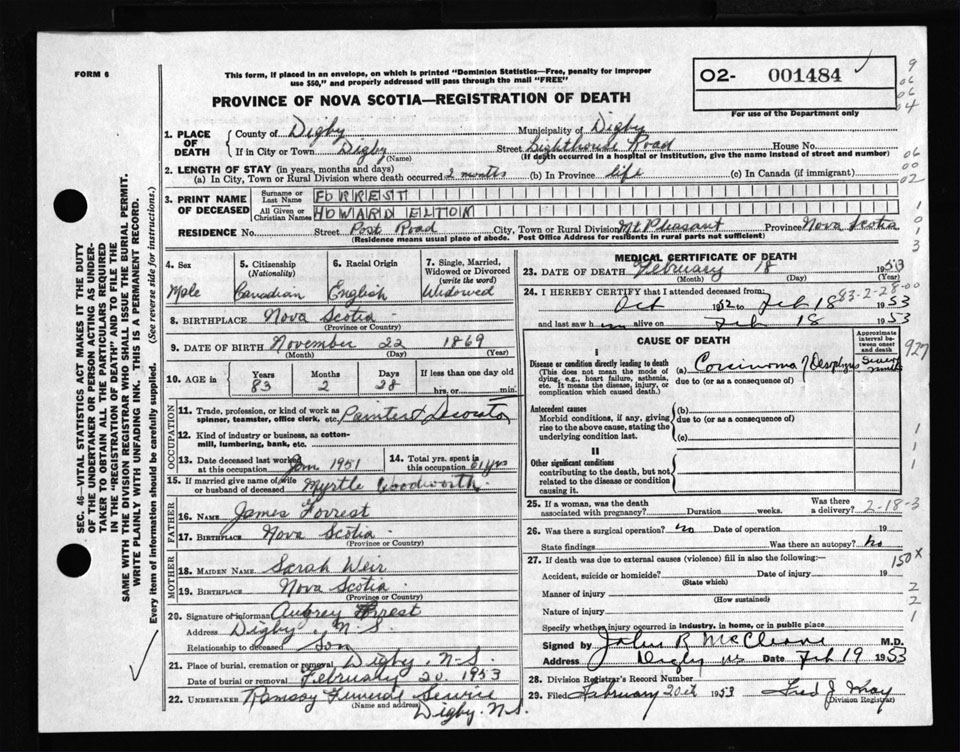 FORM 6
This form, if placed in an envelope, on which is printed "Dominion Statistics—Free, penalty for improper
use $50," and properly addressed will pass through the mail "FREE"
O2- 001484
For use of the Department only
PROVINCE OF NOVA SCOTIA—REGISTRATION OF DEATH
1. PLACE OF DEATH
County of Digby Municipality of Digby
If in City or Town Digby Street Lighthouse Road House No.
(Name) (If death occurred in a hospital or institution, give the name instead of street and number)
2. LENGTH OF STAY (in years, months and days)
(a) In City, Town or Rural Division where death occurred 2 months (b) In Province life (c) In Canada (if immigrant)
3. PRINT NAME OF DECEASED
Surname or Last Name FORREST
All Given or Christian Names HOWARD ELTON
RESIDENCE No. Street Post Road City, Town or Rural Division Mt Pleasant Province Nova Scotia
(Residence means usual place of abode. Post Office Address for residents in rural parts not sufficient)
4. Sex
Male
5. Citizenship (Nationality)
Canadian
6. Racial Origin
English
7. Single, Married, Widowed or Divorced (write the word)
Widowed
8. BIRTHPLACE Nova Scotia
(Province or Country)
9. DATE OF BIRTH November 22 1869
(Month) (Day) (Year)
10. AGE in Years Months Days If less than one day old
83 2 28 hrs. or min.
OCCUPATION
11. Trade, profession, or kind of work as
spinner, teamster, office clerk, etc. Painter & Decorator
12. Kind of industry or business, as cotton-
mill, lumbering, bank, etc.
13. Date deceased last worked
at this occupation Jan 1951
14. Total yrs. spent in
this occupation 61 yrs
15. If married give name of wife
or husband of deceased Myrtle Woodworth
FATHER
16. NAME James Forrest
17. BIRTHPLACE Nova Scotia
(Province or Country)
MOTHER
18. MAIDEN NAME Sarah Weir
19. BIRTHPLACE Nova Scotia
(Province or Country)
20. Signature of informant Aubrey Forrest
Address Digby, N.S.
Relationship to deceased Son
21. Place of burial, cremation or removal Digby, N-S.
Date of burial or removal February 20. 1953
22. UNDERTAKER Ramsay Funeral Service
(Name and address) Digby. N.S.
MEDICAL CERTIFICATE OF DEATH
23. DATE OF DEATH February 18 1953
(Month) (Day) (Year)
24. I HEREBY CERTIFY that I attended deceased from:
83-2-28-00
Oct 1952 to Feb 18 1953
and last saw him alive on Feb 18 1953
CAUSE OF DEATH
Approximate interval between onset and death
I
Disease or condition directly leading to death
(This does not mean the mode of
dying, e.g., heart failure, asthenia,
etc. It means the disease, injury, or
complication which caused death.)
(a) Carcinoma of Oesophagus Several months
due to (or as a consequence of)
Antecedent causes
Morbid conditions, if any, giving
rise to the above cause, stating the
underlying condition last.
(b)
due to (or as a consequence of)
(c)
II
Other significant conditions
contributing to the death, but not
related to the disease or condition
causing it.
25. If a woman, was the death
associated with pregnancy? Duration weeks. Was there
a delivery? 2-18-3
26. Was there a surgical operation? No Date of operation 19
State findings Was there an autopsy? No
27. If death was due to external causes (violence) fill in also the following:—
Accident, suicide or homicide? Date of injury 19
(State which)
Manner of injury
(How sustained)
Nature of injury
Specify whether injury occurred in industry, in home, or in public place
Signed by M.D.
Address Digby NS Date Feb 19 1953
28. Division Registrar's Record Number
29. Filed February 20th 1953
Division Registrar
9
06
06
04
06
00
02
1
0
1
3
927
1
1
1
150X
2
2
1
SEC. 46—VITAL STATISTICS ACT MAKES IT THE DUTY
OF THE UNDERTAKER OR PERSON ACTING AS UNDER-
TAKER TO OBTAIN ALL THE PARTICULARS REQUIRED
IN THE "REGISTRATION OF DEATH" AND TO FILE THE
SAME WITH THE DIVISION REGISTRAR WHO SHALL ISSUE THE BURIAL PERMIT.
WRITE PLAINLY WITH UNFADING INK. THIS IS A PERMANENT RECORD.
Every item of Information should be carefully supplied. (See reverse side for instructions.)